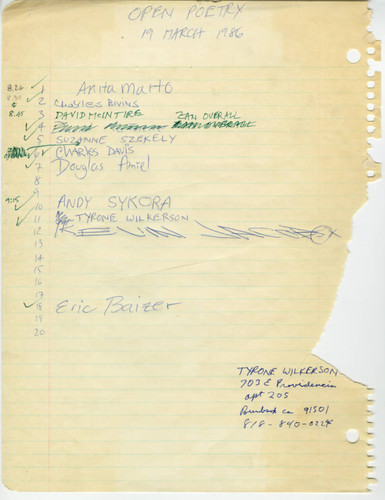 OPEN POETRY
19 MARCH 1986
8:26 ✓ 1 Anita Marto
8:30 2 Charles Bivins
8:45 3 DAVID MCINTIRE ZAN OVERALL
✓ 4 ZAN OVERALL
✓ 5 SUZANNE SZEKELY
6 CHARLES DAVIS
✓ 7 Douglas Amiel
8
9
9:15 ✓ 10 ANDY SYKORA
✓ 11 TYRONE WILKERSON
12 KEVIN JACOBS
13
14
15
16
17
✓ 18 Eric Baizer
19
20
TYRONE WILKERSON
703 E Providencia
apt 205
Burbank ca 91501
818-840-0224